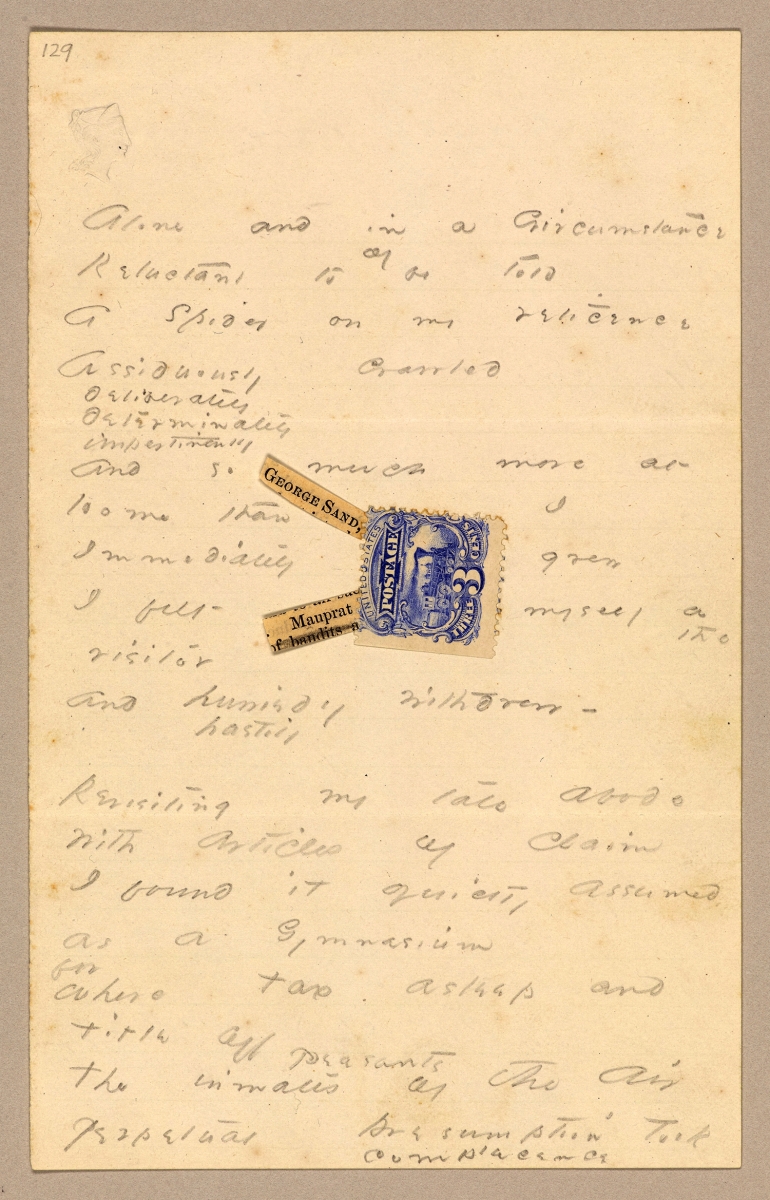 129
Alone and in a Circumstance
Reluctant to be told
of
A Spider on my reticence
Assiduously crawled
deliberately
determinately
impertinently
And so much more at
GEORGE SAND,
Home than I
Immediately grew
UNITED STATES
POSTAGE
THREE 3 CENTS
Mauprat
of bandits a
I felt myself a
the
visitor
And hurriedly withdrew -
hastily
Revisiting my late abode
With articles of Claim
I found it quietly assumed
as a Gymnasium
for
where tax asleep and
title off
peasants
The inmates of the Air
Perpetual presumption took
complacence